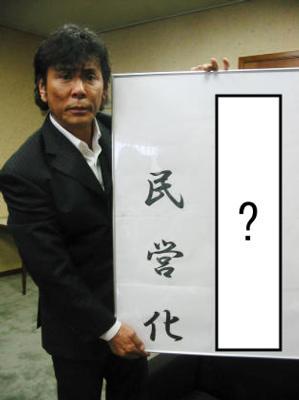 ?
民営化